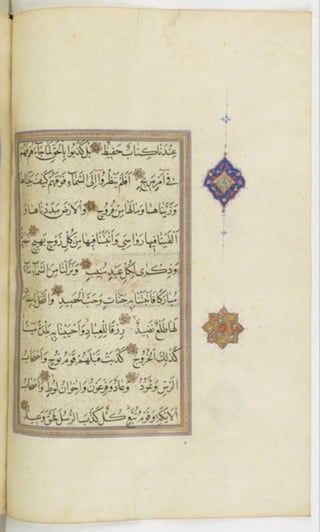 عِنْدَنَا كِتَابٌ حَفِيظٌ بَلْ كَذَّبُوا بِالْحَقِّ لَمَّا جَاءَهُمْ فَهُمْ
فِي أَمْرٍ مَرِيجٍ أَفَلَمْ يَنْظُرُوا إِلَى السَّمَاءِ فَوْقَهُمْ كَيْفَ بَنَيْنَاهَا
وَزَيَّنَّاهَا وَمَا لَهَا مِنْ فُرُوجٍ وَالْأَرْضَ مَدَدْنَاهَا وَ
أَلْقَيْنَا فِيهَا رَوَاسِيَ وَأَنْبَتْنَا فِيهَا مِنْ كُلِّ زَوْجٍ بَهِيجٍ تَبْصِرَةً
وَذِكْرَى لِكُلِّ عَبْدٍ مُنِيبٍ وَنَزَّلْنَا مِنَ السَّمَاءِ مَاءً
مُبَارَكًا فَأَنْبَتْنَا بِهِ جَنَّاتٍ وَحَبَّ الْحَصِيدِ وَالنَّخْلَ بَاسِقَاتٍ
لَهَا طَلْعٌ نَضِيدٌ رِزْقًا لِلْعِبَادِ وَأَحْيَيْنَا بِهِ بَلْدَةً مَيْتًا
كَذَلِكَ الْخُرُوجُ كَذَّبَتْ قَبْلَهُمْ قَوْمُ نُوحٍ وَأَصْحَابُ
الرَّسِّ وَثَمُودُ وَعَادٌ وَفِرْعَوْنُ وَإِخْوَانُ لُوطٍ وَأَصْحَابُ
الْأَيْكَةِ وَقَوْمُ تُبَّعٍ كُلٌّ كَذَّبَ الرُّسُلَ فَحَقَّ وَعِيدِ